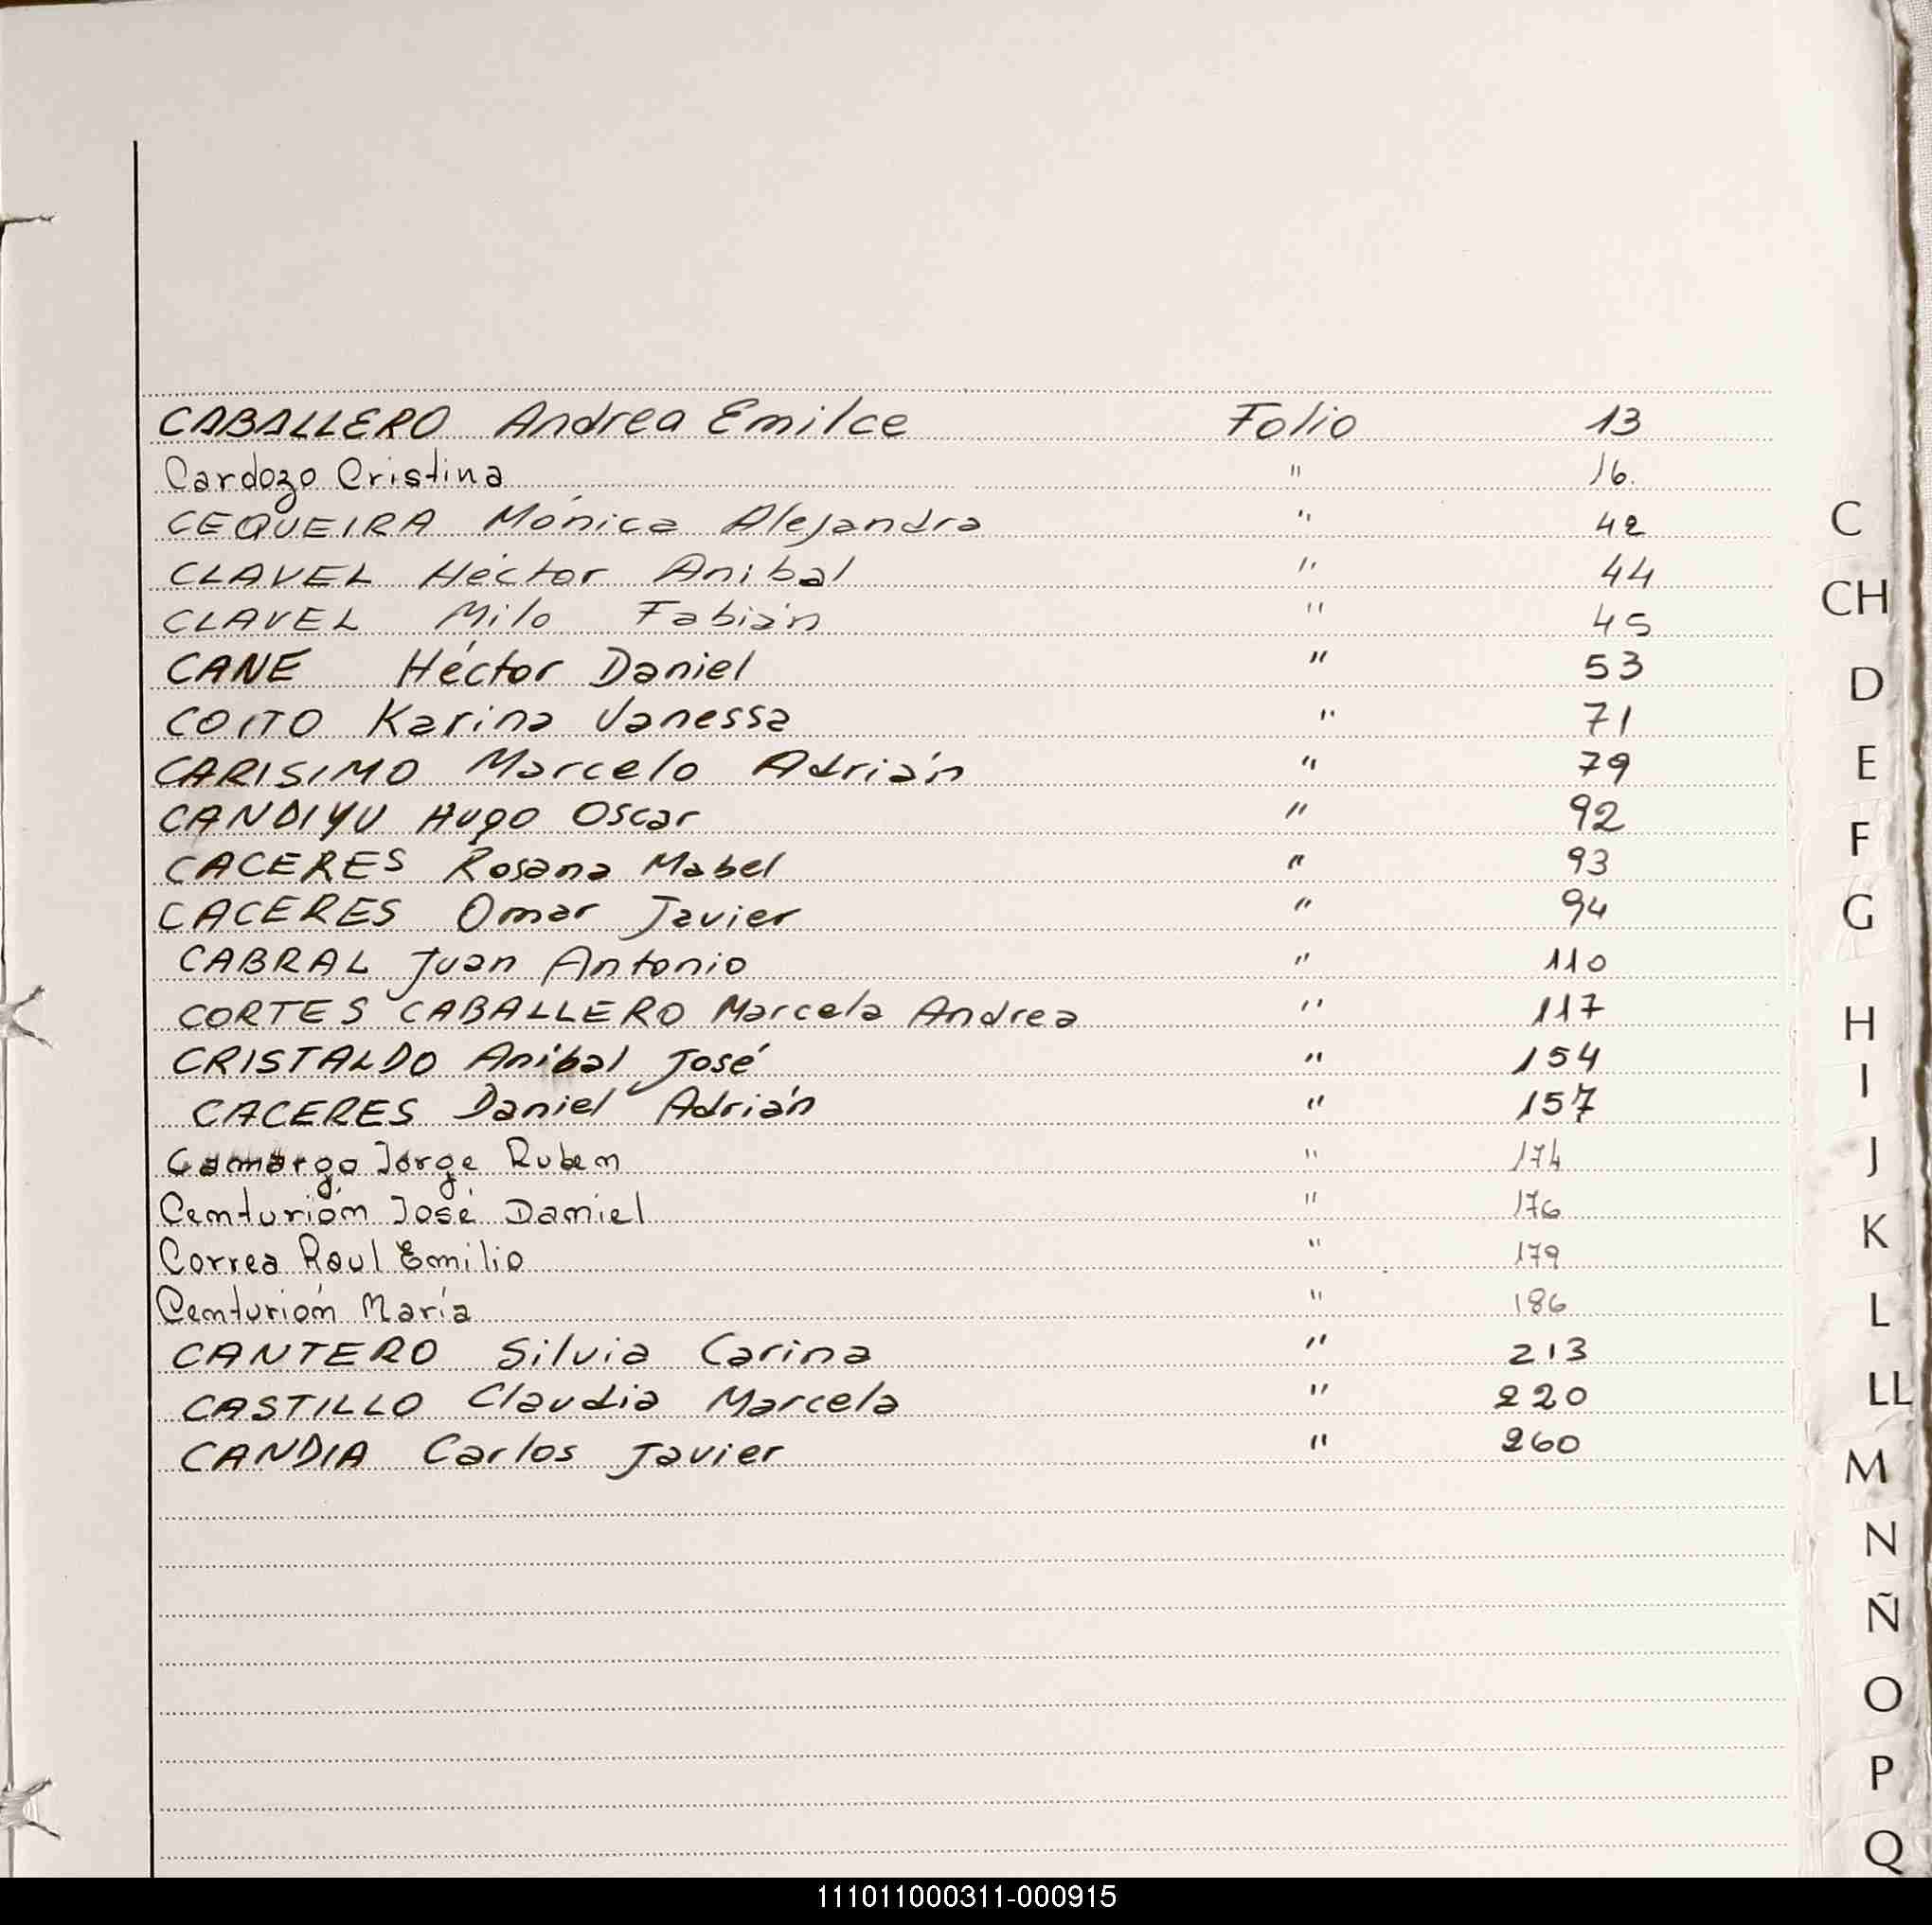 CABALLERO Andrea Emilce Folio 13
Cardozo Cristina " 16.
CEQUEIRA Mónica Alejandra " 42
CLAVEL Héctor Anibal " 44
CLAVEL Milo Fabián " 45
CANE Héctor Daniel " 53
COITO Karina Vanessa " 71
CARISIMO Marcelo Adrián " 79
CANDIYU Hugo Oscar " 92
CACERES Rosana Mabel " 93
CACERES Omar Javier " 94
CABRAL Juan Antonio " 110
CORTES CABALLERO Marcela Andrea " 117
CRISTALDO Aníbal José " 154
CACERES Daniel Adrián " 157
Camargo Jorge Ruben " 174
Centurión José Daniel " 176
Correa Raul Emilio " 179
Centurión María " 186
CANTERO Silvia Carina " 213
CASTILLO Claudia Marcela " 220
CANDIA Carlos Javier " 260
C
CH
D
E
F
G
H
I
J
K
L
LL
M
N
Ñ
O
P
Q
111011000311-000915